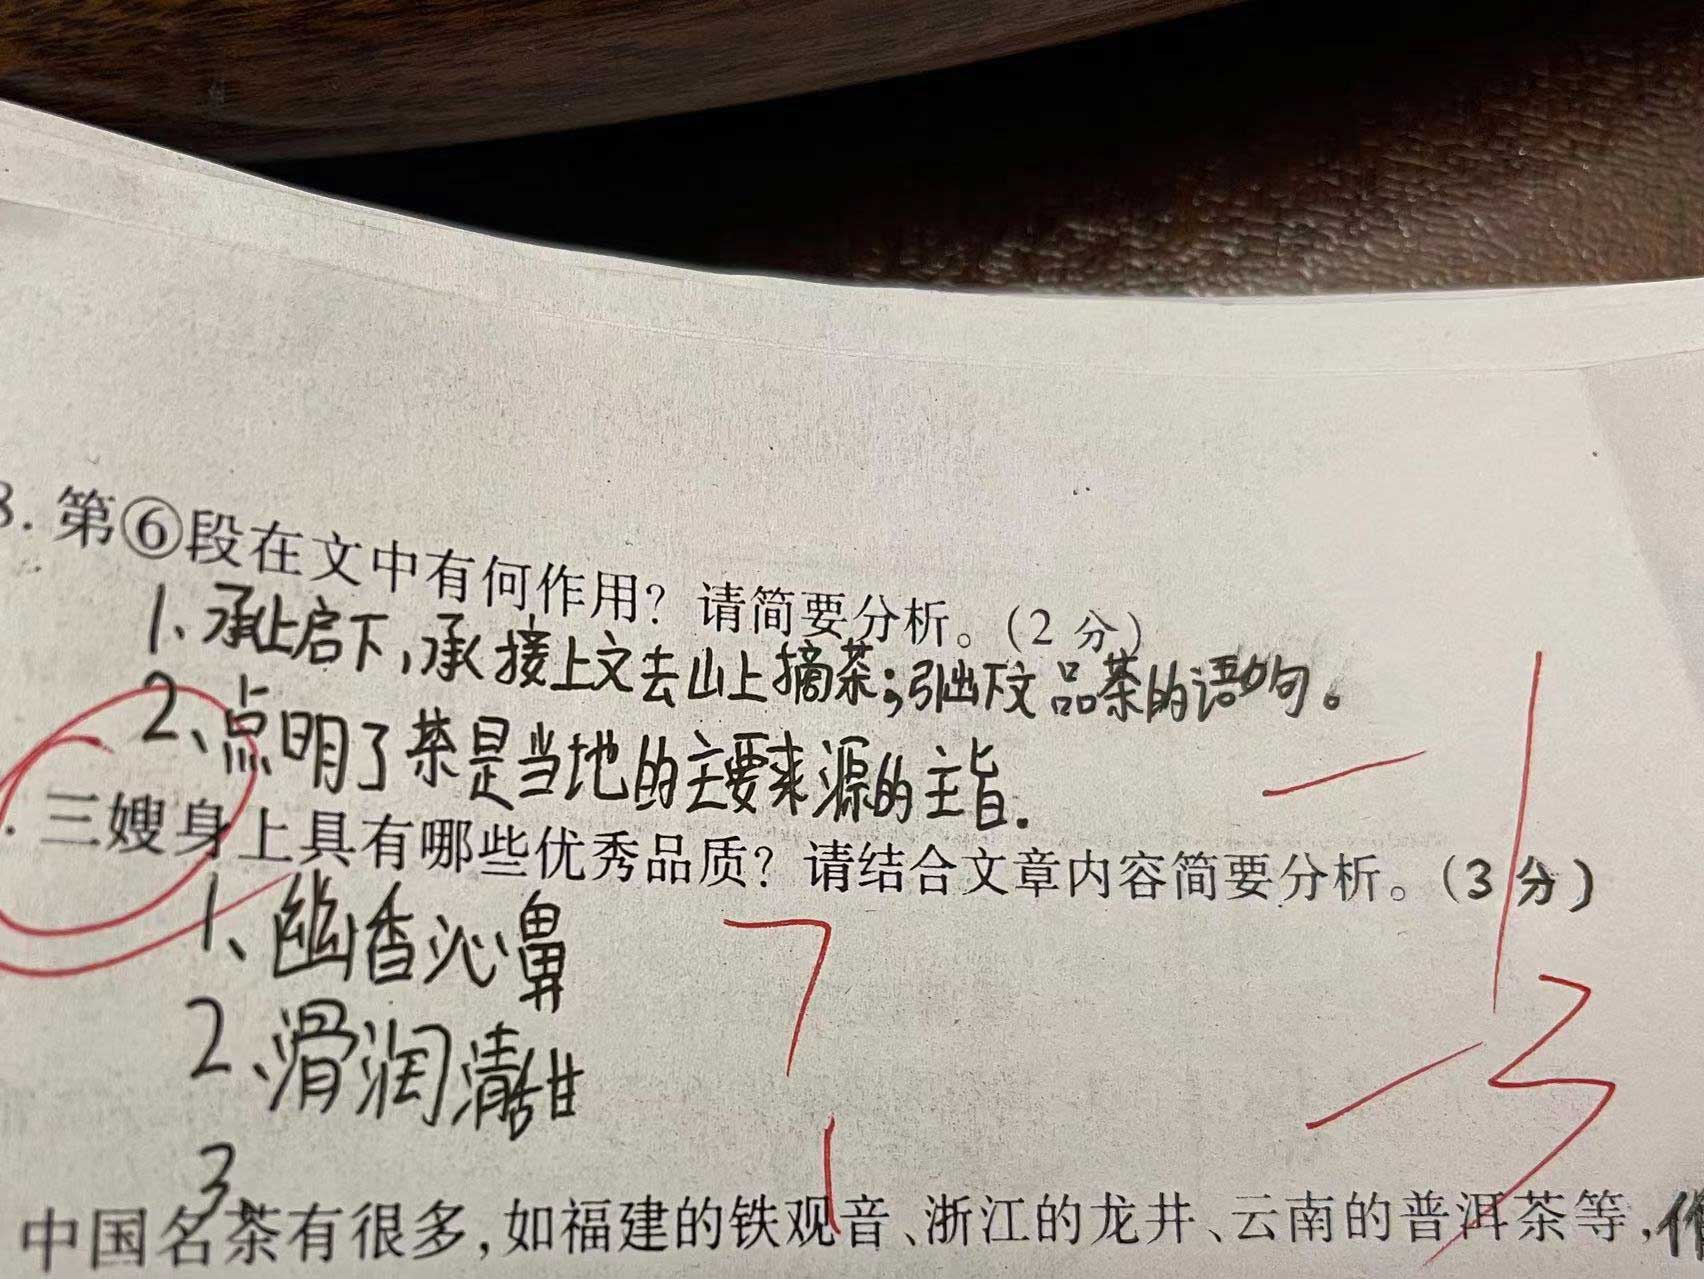 3. 第⑥段在文中有何作用？请简要分析。（2 分）
1、承上启下，承接上文去山上摘茶；引出下文品茶的语句。
2、点明了茶是当地的主要来源的主旨.
. 三嫂身上具有哪些优秀品质？请结合文章内容简要分析。（3 分）
1、幽香沁鼻
2、滑润清甜
3、
中国名茶有很多，如福建的铁观音、浙江的龙井、云南的普洱茶等，作
-1
-3